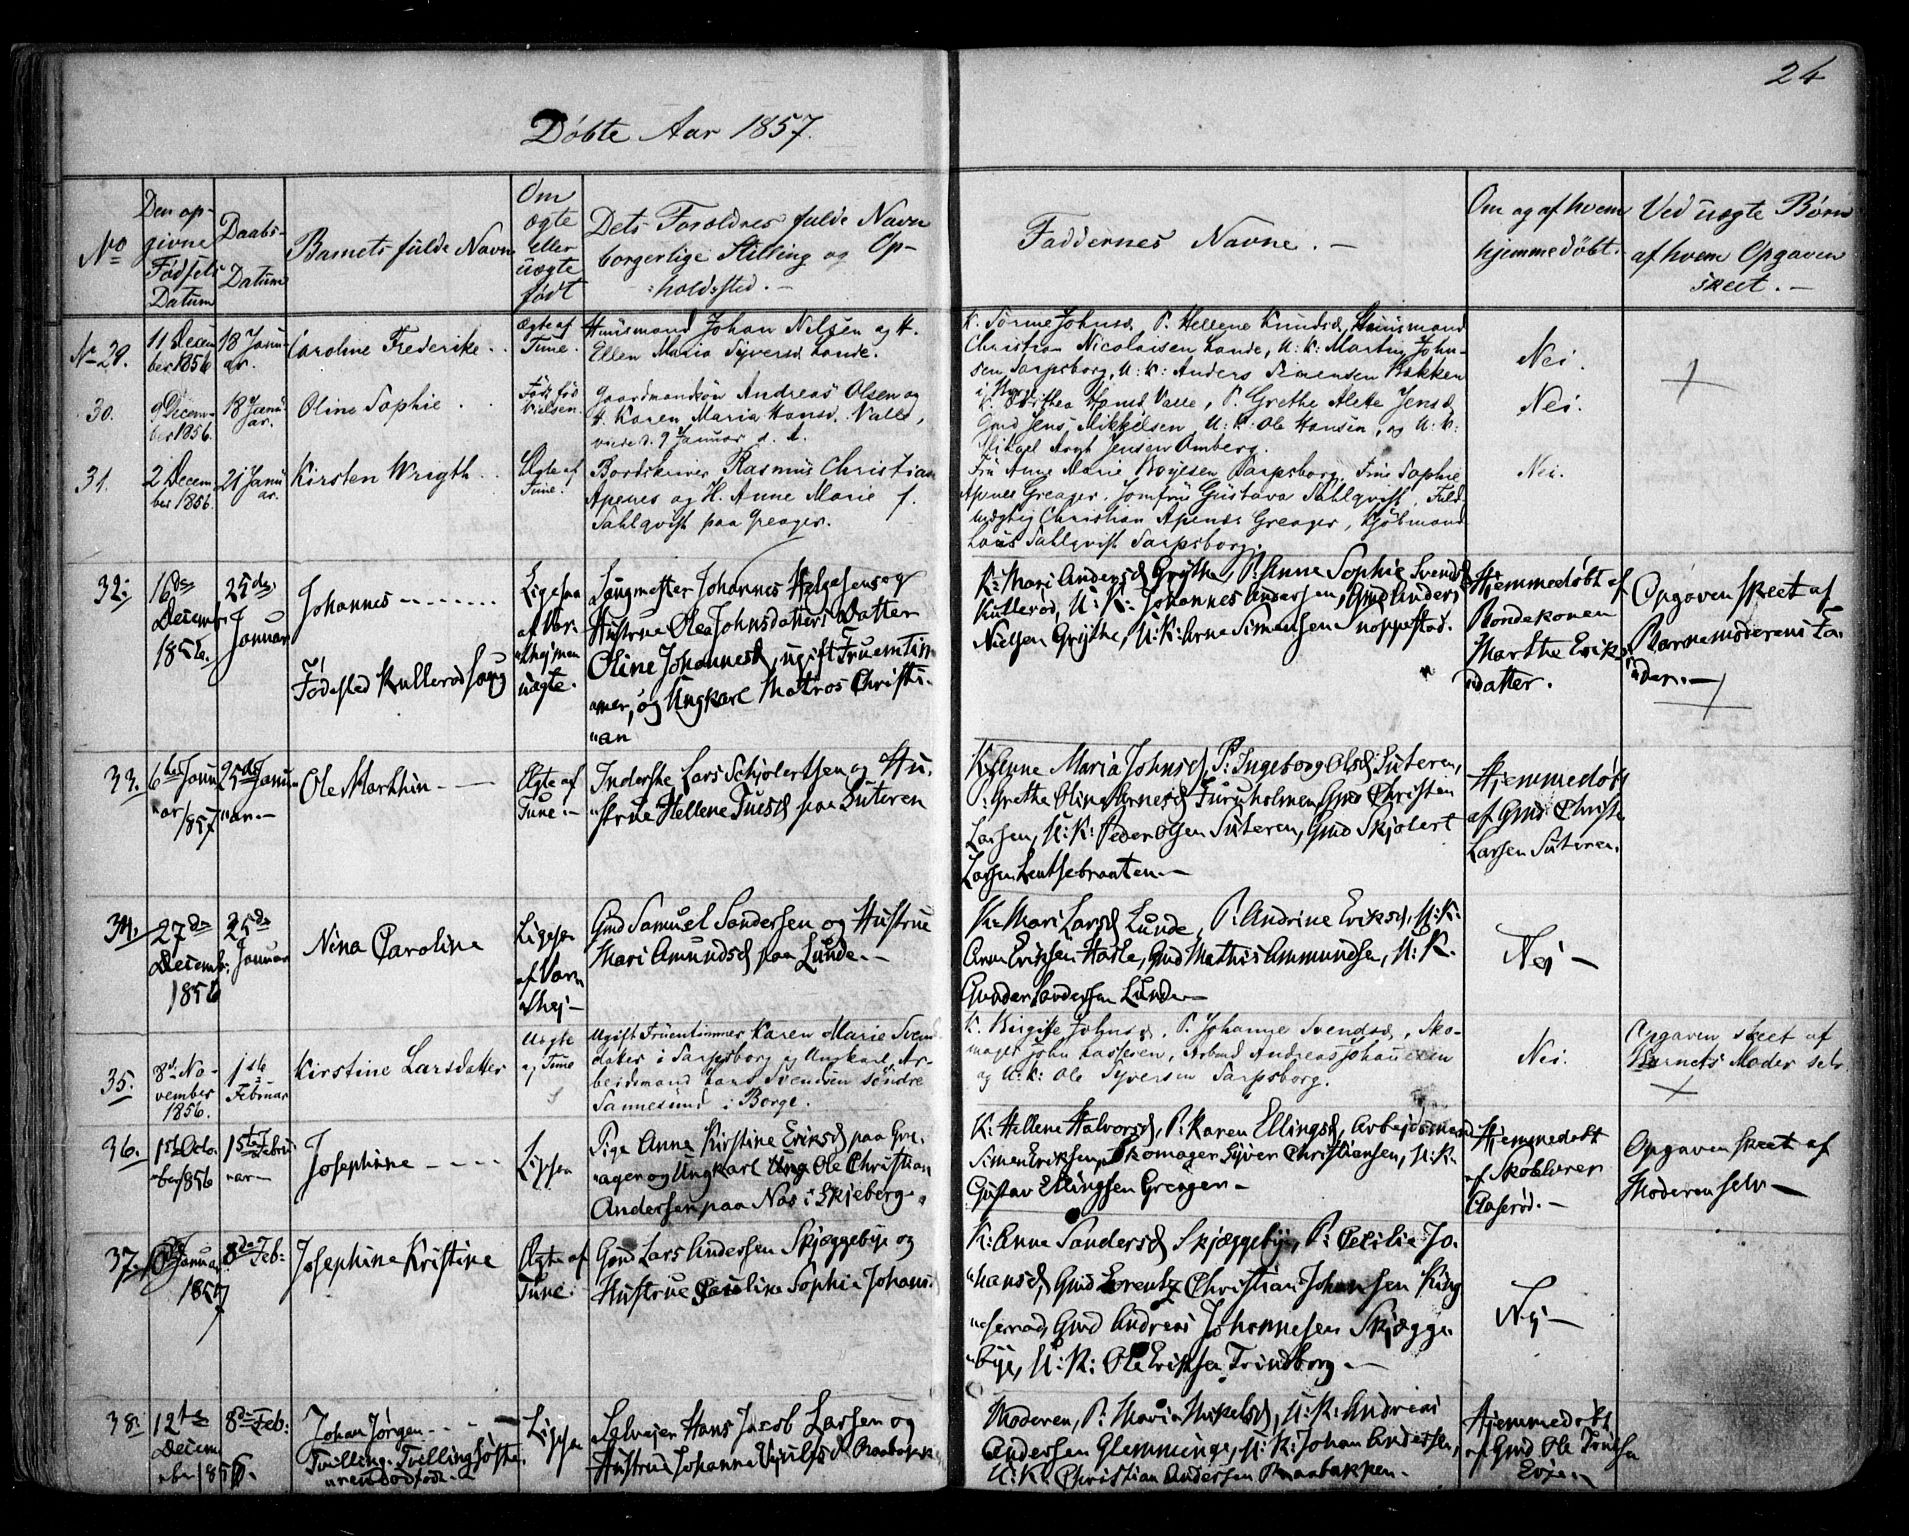 24
Døbte Aar 1857.
No
Den op-
givne
Fødsels
Datum
Daabs-
Datum
Barnets fulde Navn
Om
ægte
eller
uægte
født
Dets Forældres fulde Navn
borgerlige Stilling og Op-
holdssted. -
Faddernes Navne. -
Om og af hvem
hjemmedøbt.
Ved uægte Børn
af hvem Opgaven
skeet. -
No 29.
11 Decem
ber 1856
18 Janu-
ar.
Caroline Frederike
Ægte af
Tune.
Huusmand Johan Nilsen og H.
Ellen Maria Syversd Lande.
Johnsd P. Hellene Knudsd, Huusmand
Christian Nicolaisen Lande, U: K: Martin John-
sen Sarpsborg, U: K: Anders Simensen Bakken
Nei.
30.
9 Decem-
ber 1856.
18 Janu
ar.
Oline Sophie
Gaardmandsøn Andreas Olsen og
H. Karen Maria Hansd. Valle,
viede d. 9 Januar d. A.
Hansd Valle, P. Grethe Alete Jensd
Gmd Jens Mikkelsen, U: K: Ole Hansen, og U: K:
Jensen Omberg.
Nei.
31.
2 Decem-
ber 1856.
21 Janu
ar.
Kirsten Wrigth
Ægte af
Tune.
Rasmus Christian
Apenes og H. Anne Marie f.
Sahlqvist paa Greager.
Fru Anne Marie Boyesen Sarpsborg, Frue Sophie
Apenes Greager, Jomfrue Gustava Sahlqvist, Fuld-
mægtig Christian Apenes Greager, Kjøbmand
Sahlqvist Sarpsborg.
Nei.
32.
16de
Decemb
1856.
25de
Januar
Johannes
Fødested Kullerødsaug
Ligesaa
af Var-
uægte.
Saugmester Johannes Helgesens og
Hustrue Olea Johnsdatters Datter
Oline Johannesd, ugift Fruentim-
mer, og Ungkarl Matros Christi-
an
K: Mari Andersd Grythe, P: Anne Sophie Svendsd
Kullerød, U: K: Johannes Andersen, Gmd Anders
Nielsen Grythe, U: K: Arne Simensen
Hjemmedøbt af
Bondekonen
Marthe Eriks
datter.
Opgaven skeet af
Barnemoderens Fo-
33.
6te Janu
ar 1857
25de Janu
ar. -
Ole Marthin
Ægte af
Tune. -
Inderste Lars Schjolertsen og Hu-
strue Hellene Tuesd paa Suteren
K: Anne Maria Johnsd, P: Ingeborg Olsd Suteren,
P: Grethe Oline Arnesd Furuholmen, Gmd Christen
Larsen, U: K: Peder Olsen Suteren, Gmd Skjolert
Larsen
Hjemmedøbt
af Gmd Christen
Larsen Suteren.
34.
27de
Decemb:
1856
25de
Januar
Nina Caroline
Ligesaa
af Varn
Gmd Samuel Sandersen og Hustrue
Mari Amundsd paa Lunde. -
K: Mari Larsd Lunde, P: Andrine Eriksd, U: K:
Arne Eriksen Hasle, Gmd Mathis Ammundsen, U: K.
Gunder Sandersen Lunde -
Nej -
35.
8de No-
vember
1856.
1ste
Februar
Kirstine Larsdatter
Uægte
af Tune
Ugift Fruentimmer Karen Marie Svends
datter i Sarpsborg og Ungkarl, Ar-
beidsmand Lars Svendsen søndre
Sannesund i Borge.
K. Birgitte Johnsd. P. Johanne Svendsd, Sko-
mager John Larsen, Arbmd Andreas Johannesen
og U: K: Ole Syversen Sarpsborg.
Nei.
Opgaven skeet af
Barnets Moder selv.
36.
1ste Octo-
ber 1856
1ste Febru
ar -
Josephine
Ligesaa
Pige Anne Kirstine Eriksd paa Gre-
ager og Ungkarl Ole Christian
Andersen paa Nas i Skjeberg.
K: Hellene Halvorsd, P: Karen Ellingsd, Arbejdsmand
Simen Eriksen, Skomager Syver Christiansen, U: K.
Gustav Ellingsen Greager -
Hjemmedøbt
af Skolelærer
Aaserød. -
Opgaven skeet af
Moderen selv -
37.
Januar
1857
8de Feb:
Josephine Kristine
Ægte af
Tune.
Gmd Lars Andersen Skjæggebye og
Hustrue Caroline Sophia Johans.
K: Anne Sandersd Skjæggebye, P: Cecilie Jo-
hansd, Gmd Lorentz Christian Johansen Ring
Gmd Andreas Johannesen Skjægge-
bye, U: K: Ole Eriksen Trindborg -
Nej -
38.
12te
Decem
ber 1856.
8de Feb:
Johan Jørgen
Tvilling. Tvillingsøste
ren dødfødt.
Ligesaa
Selvejer Hans Jacob Larsen og
Hustrue Johanne Raabakk
Moderen, P: Maria Mikelsd, U: K: Andreas
Andersen Glemminge, U: K: Johan Andersen,
U: K: Christian Andersen Raabakken.
Hjemmedøbt
af Gmd Ole